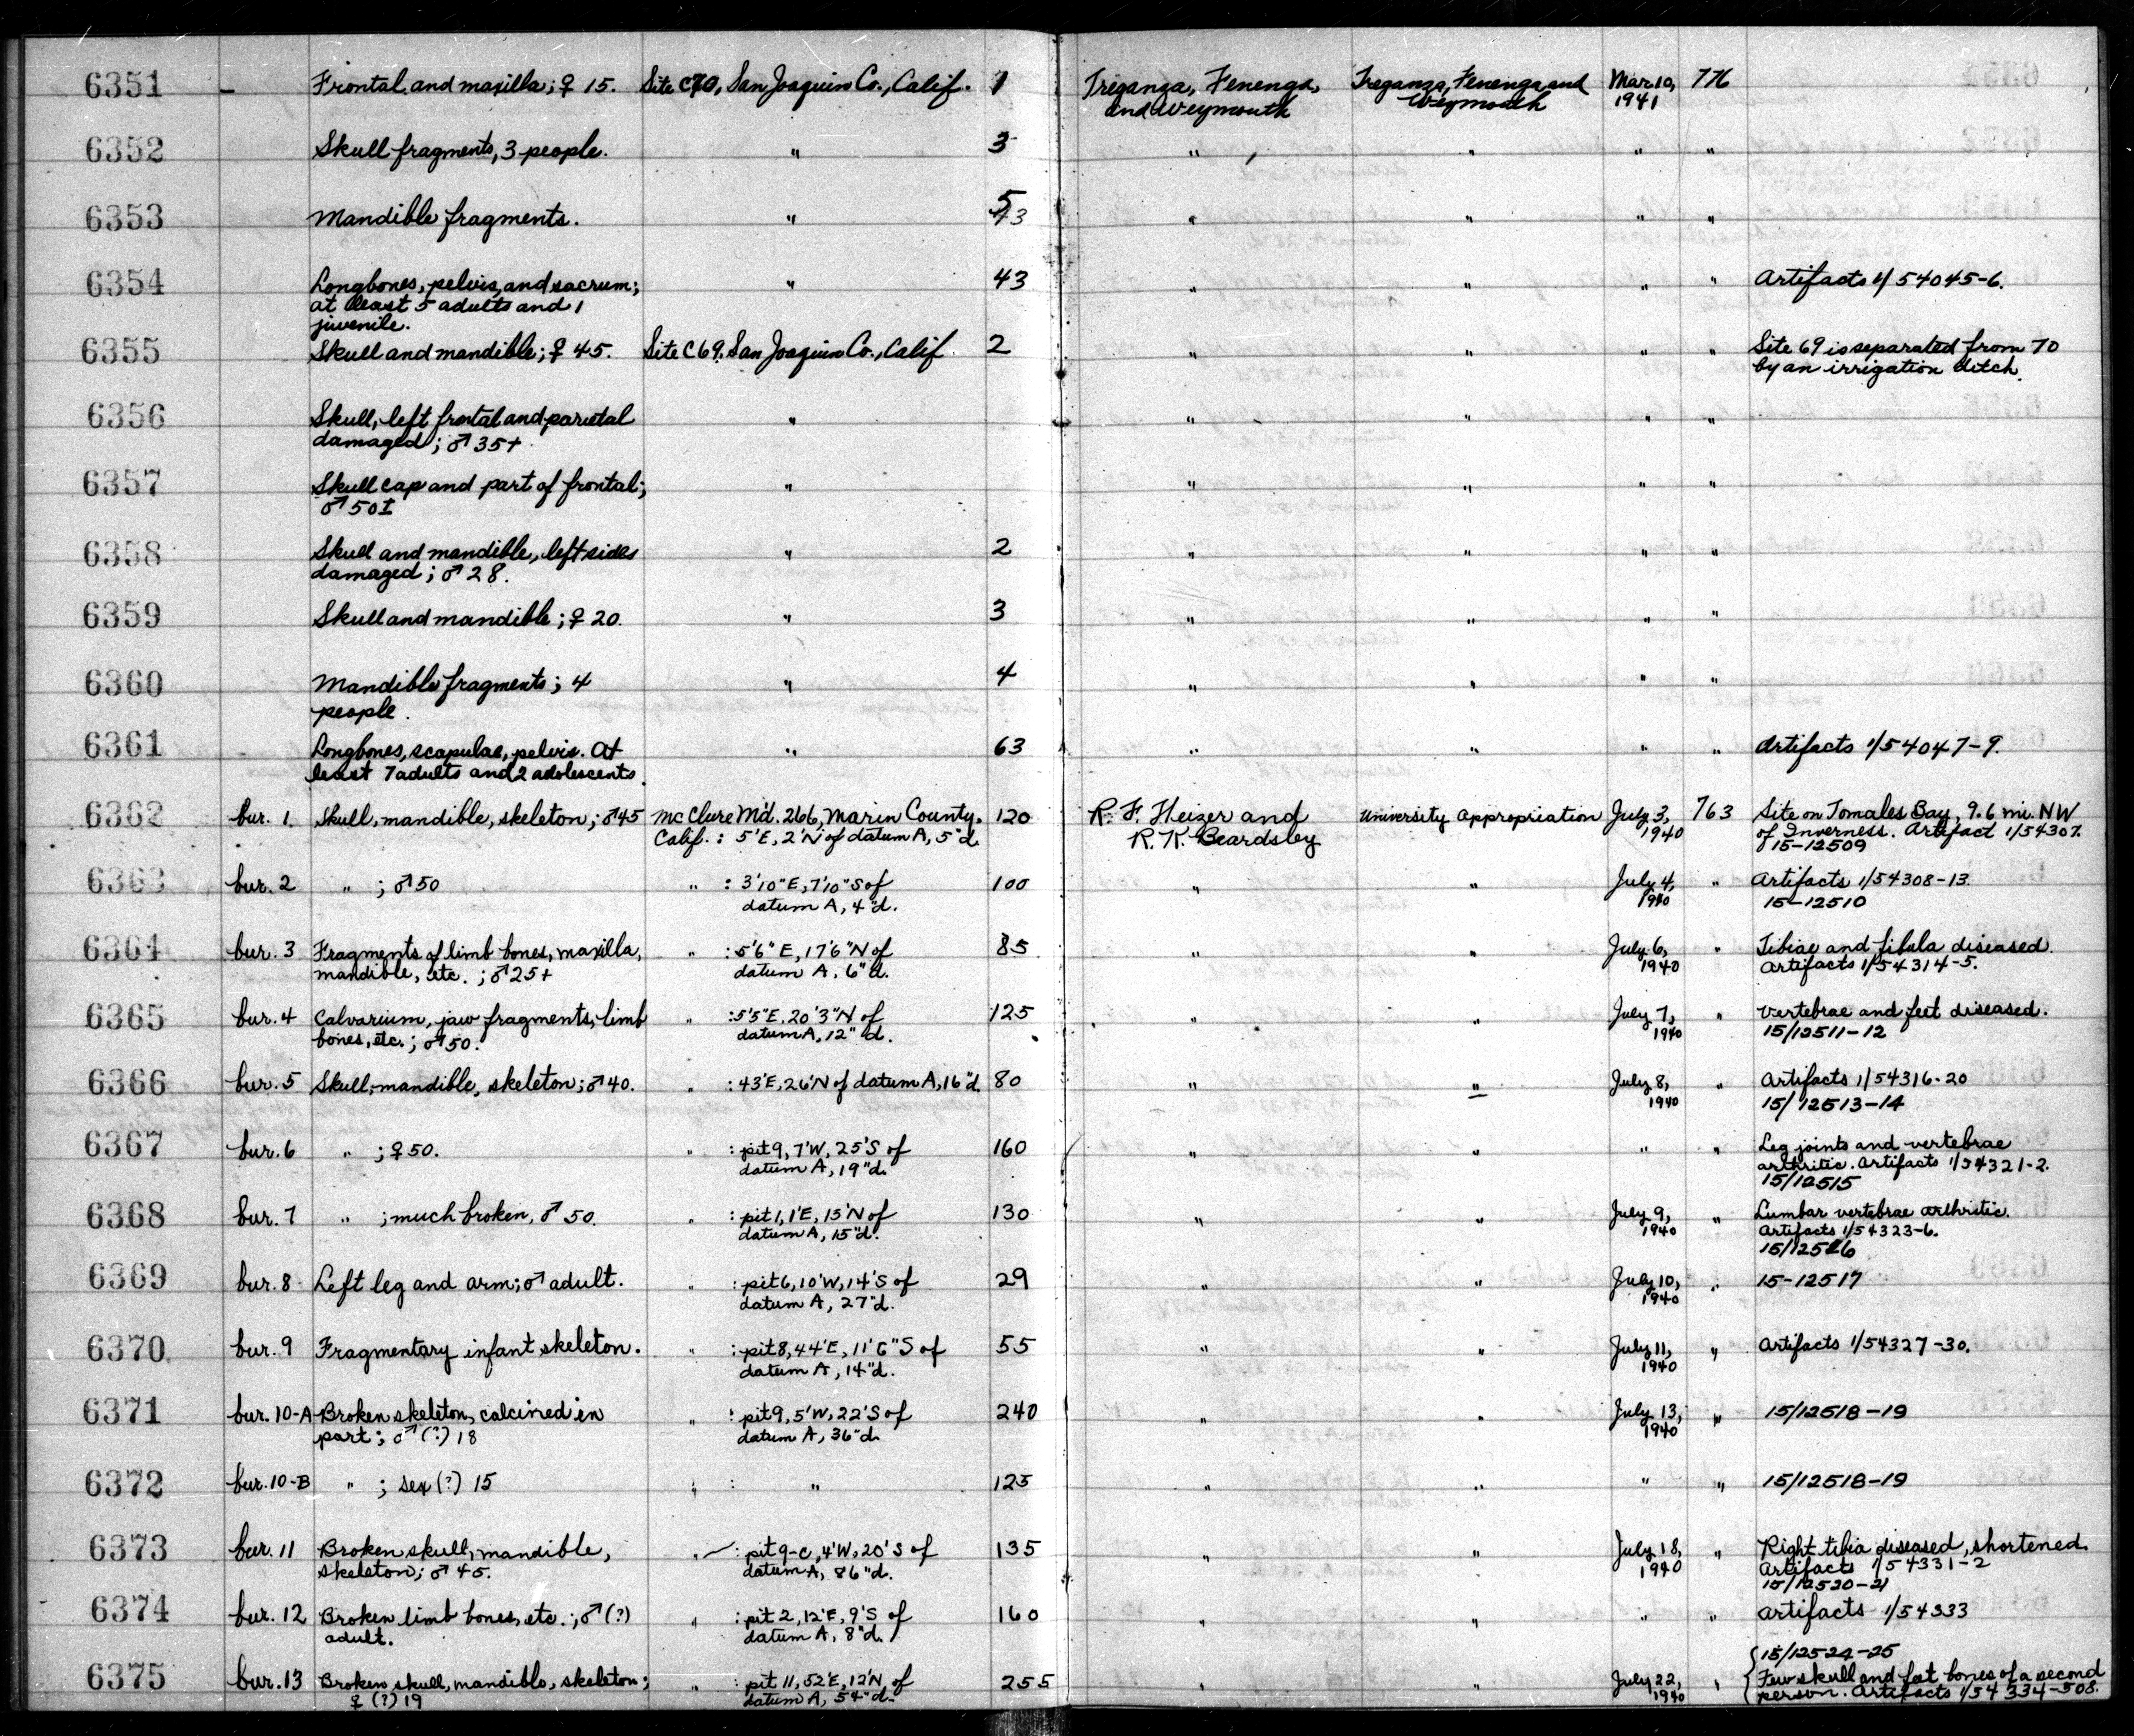 6351 - Frontal and maxilla; ♀ 15. Site C70, San Joaquin Co., Calif. 1 Treganza, Fenenga, Treganza, Fenenga and Mar 10, 776
and Weymouth Weymouth 1941
6352 Skull fragments, 3 people. " 3 " " " "
6353 Mandible fragments. " 5 " " " "
6354 Longbones, pelvis, and sacrum; " 43 " " " " Artifacts 1/54045-6.
at least 5 adults and 1
juvenile.
6355 Skull and mandible; ♀ 45. Site C69, San Joaquin Co., Calif. 2 " " " " Site 69 is separated from 70
by an irrigation ditch.
6356 Skull, left frontal and parietal " " " " "
damaged; ♂ 35+
6357 Skull cap and part of frontal; " " " " "
♂ 50±
6358 Skull and mandible, left sides " 2 " " " "
damaged; ♂ 28.
6359 Skull and mandible; ♀ 20. " 3 " " " "
6360 Mandible fragments; 4 " 4 " " " "
people.
6361 Longbones, scapulae, pelvis. At " 63 " " " " Artifacts 1/54047-9.
least 7 adults and 2 adolescents.
6362 bur. 1. Skull, mandible, skeleton; ♂45 McClure Md. 266, Marin County, 120 R. F. Heizer and University Appropriation July 3, 763 Site on Tomales Bay, 9.6 mi. NW
Calif.: 5'E, 2'N of datum A, 5"d. R. K. Beardsley 1940 of Inverness. Artifact 1/54307.
15-12509
6363 bur. 2 " ; ♂50 " : 3'10"E, 7'10"S of 100 " " July 4, " Artifacts 1/54308-13.
datum A, 4"d. 1940 15-12510
6364 bur. 3 Fragments of limb bones, maxilla, " : 5'6"E, 17'6"N of 85 " " July 6, " Tibiae and fibula diseased.
mandible, etc.; ♂25+ datum A, 6"d. 1940 Artifacts 1/54314-5.
6365 bur. 4 Calvarium, jaw fragments, limb " : 5'5"E, 20'3"N of 125 " " July 7, " Vertebrae and feet diseased.
bones, etc.; ♂50. datum A, 12"d. 1940 15/12511-12
6366 bur. 5 Skull, mandible, skeleton; ♂40. " : 43'E, 26'N of datum A, 16"d. 80 " " July 8, " Artifacts 1/54316-20
1940 15/12513-14
6367 bur. 6 " ; ♀50. " : pit 9, 7'W, 25'S of 160 " " " " Leg joints and vertebrae
datum A, 19"d. arthritic. Artifacts 1/54321-2.
15/12515
6368 bur. 7 " ; much broken, ♂ 50. " : pit 1, 1'E, 15'N of 130 " " July 9, " Lumbar vertebrae arthritic.
datum A, 15"d. 1940 Artifacts 1/54323-6.
15/12516
6369 bur. 8 Left leg and arm; ♂ adult. " : pit 6, 10'W, 14'S of 29 " " July 10, " 15-12517
datum A, 27"d. 1940
6370 bur. 9 Fragmentary infant skeleton. " : pit 8, 44'E, 11'6"S of 55 " " July 11, " Artifacts 1/54327-30.
datum A, 14"d. 1940
6371 bur. 10-A Broken skeleton, calcined in " : pit 9, 5'W, 22'S of 240 " " July 13, " 15/12518-19
part; ♂ (?) 18 datum A, 36"d. 1940
6372 bur. 10-B " ; sex (?) 15 " : " 125 " " " " 15/12518-19
6373 bur. 11 Broken skull, mandible, " : pit 9-C, 4'W, 20'S of 135 " " July 18, " Right tibia diseased, shortened.
skeleton; ♂ 45. datum A, 86"d. 1940 Artifacts 1/54331-2
15/12520-21
6374 bur. 12 Broken limb bones, etc.; ♂(?) " : pit 2, 12'E, 9'S of 160 " " " " Artifacts 1/54333
adult. datum A, 8"d.
15/12524-25
6375 bur. 13 Broken skull, mandible, skeleton; " : pit 11, 52'E, 12'N of 255 " " July 22, " Few skull and feet bones of a second
♀ (?) 19 datum A, 54"d. 1940 person. Artifacts 1/54334-508.